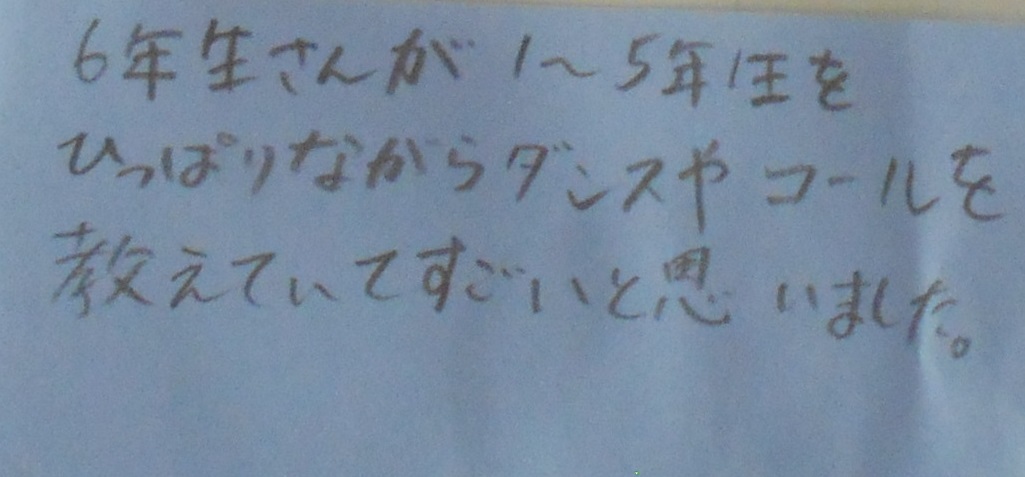 6年生さんが1〜5年生を
ひっぱりながらダンスやコールを
教えていてすごいと思いました。